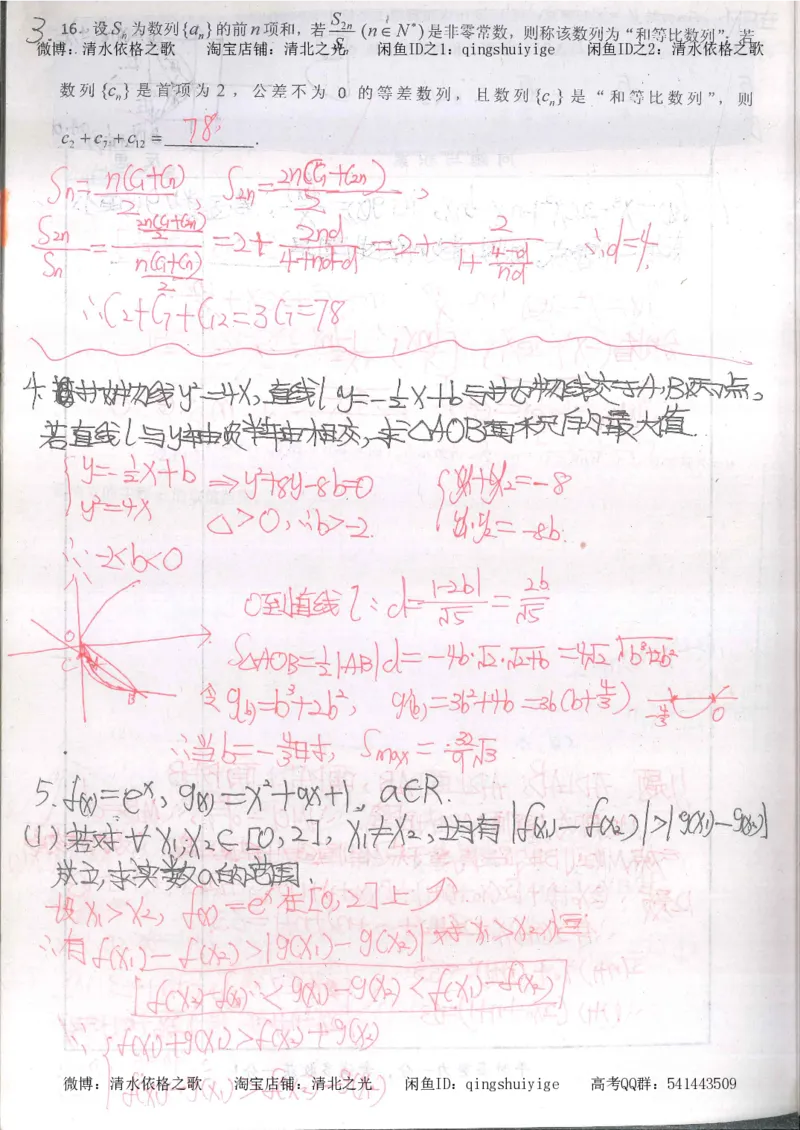 3.
16. 设Sₙ为数列{aₙ}的前n项和,若S₂ₙ/Sₙ (n∈N*)是非零常数,则称该数列为“和等比数列”;若
微博:清水依格之歌 淘宝店铺:清北之光 闲鱼ID之1:qingshuiyige 闲鱼ID之2:清水依格之歌
数列{cₙ}是首项为2,公差不为0的等差数列,且数列{cₙ}是“和等比数列”,则
c₂+c₇+c₁₂= 78 .
Sₙ=n(C₁+Cₙ)/2, S₂ₙ=2n(C₁+C₂ₙ)/2,
S₂ₙ/Sₙ = (2n(C₁+C₂ₙ)/2)/(n(C₁+Cₙ)/2) =2+ 2nd/(4+nd-d) =2+ 2/(1+(4-d)/nd) ∴d=4,
∴C₂+C₇+C₁₂=3C₇=78
4. 抛物线y²=4x,直线l y=-½x+b与抛物线交于A,B两点,
若直线l与y轴负半轴相交,求△AOB面积的最大值.
{y=-½x+b y²=4x ⇒y²+8y-8b=0 {y₁+y₂=-8
△>0,∴b>-2. y₁·y₂=-8b.
∴-2<b<0
O到直线l:d=|-2b|/√5=2b/√5
S△AOB=½|AB|d=-4b·√2·√2+b=4√2√b³+2b²
令g(b)=b³+2b², g'(b)=3b²+4b=3b(b+4/3). -4/3 0
∴当b=-4/3时,Smax=32/9√3
5. f(x)=eˣ, g(x)=x²+ax+1, a∈R.
(1)若对∀x₁,x₂∈[0,2], x₁≠x₂,均有|f(x₁)-f(x₂)|>|g(x₁)-g(x₂)|
成立,求实数a的范围.
设x₁>x₂, f(x)=eˣ在[0,2]上↗
∴有f(x₁)-f(x₂)>|g(x₁)-g(x₂)|对x₁>x₂恒
f(x₂)-f(x₁)<g(x₁)-g(x₂)<f(x₁)-f(x₂)
∴{f(x₁)+g(x₁)>f(x₂)+g(x₂)
微博:清水依格之歌 淘宝店铺:清北之光 闲鱼ID:qingshuiyige 高考QQ群:541443509
f(x₁)-g(x₁)>f(x₂)-g(x₂)